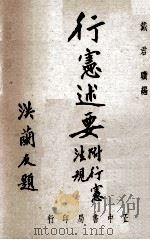 戴君曠編
行憲述要
附行憲
法規
洪蘭友題
正中書局印行